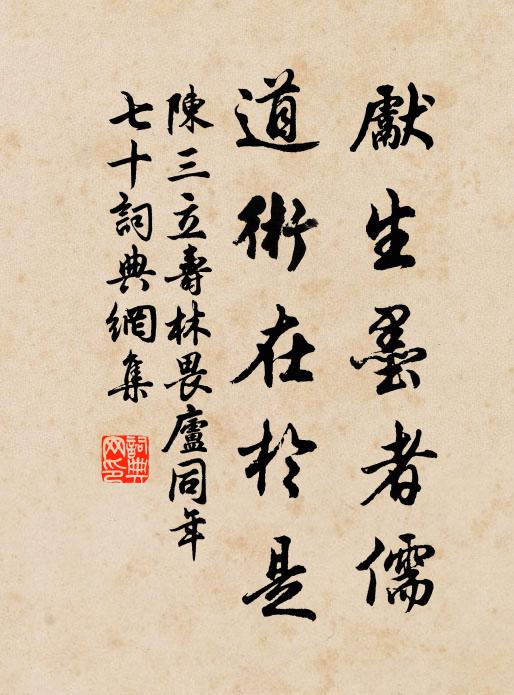 獻生墨者儒
道術在於是
陳三立壽林畏廬同年
七十詞典網集
詞典
网印